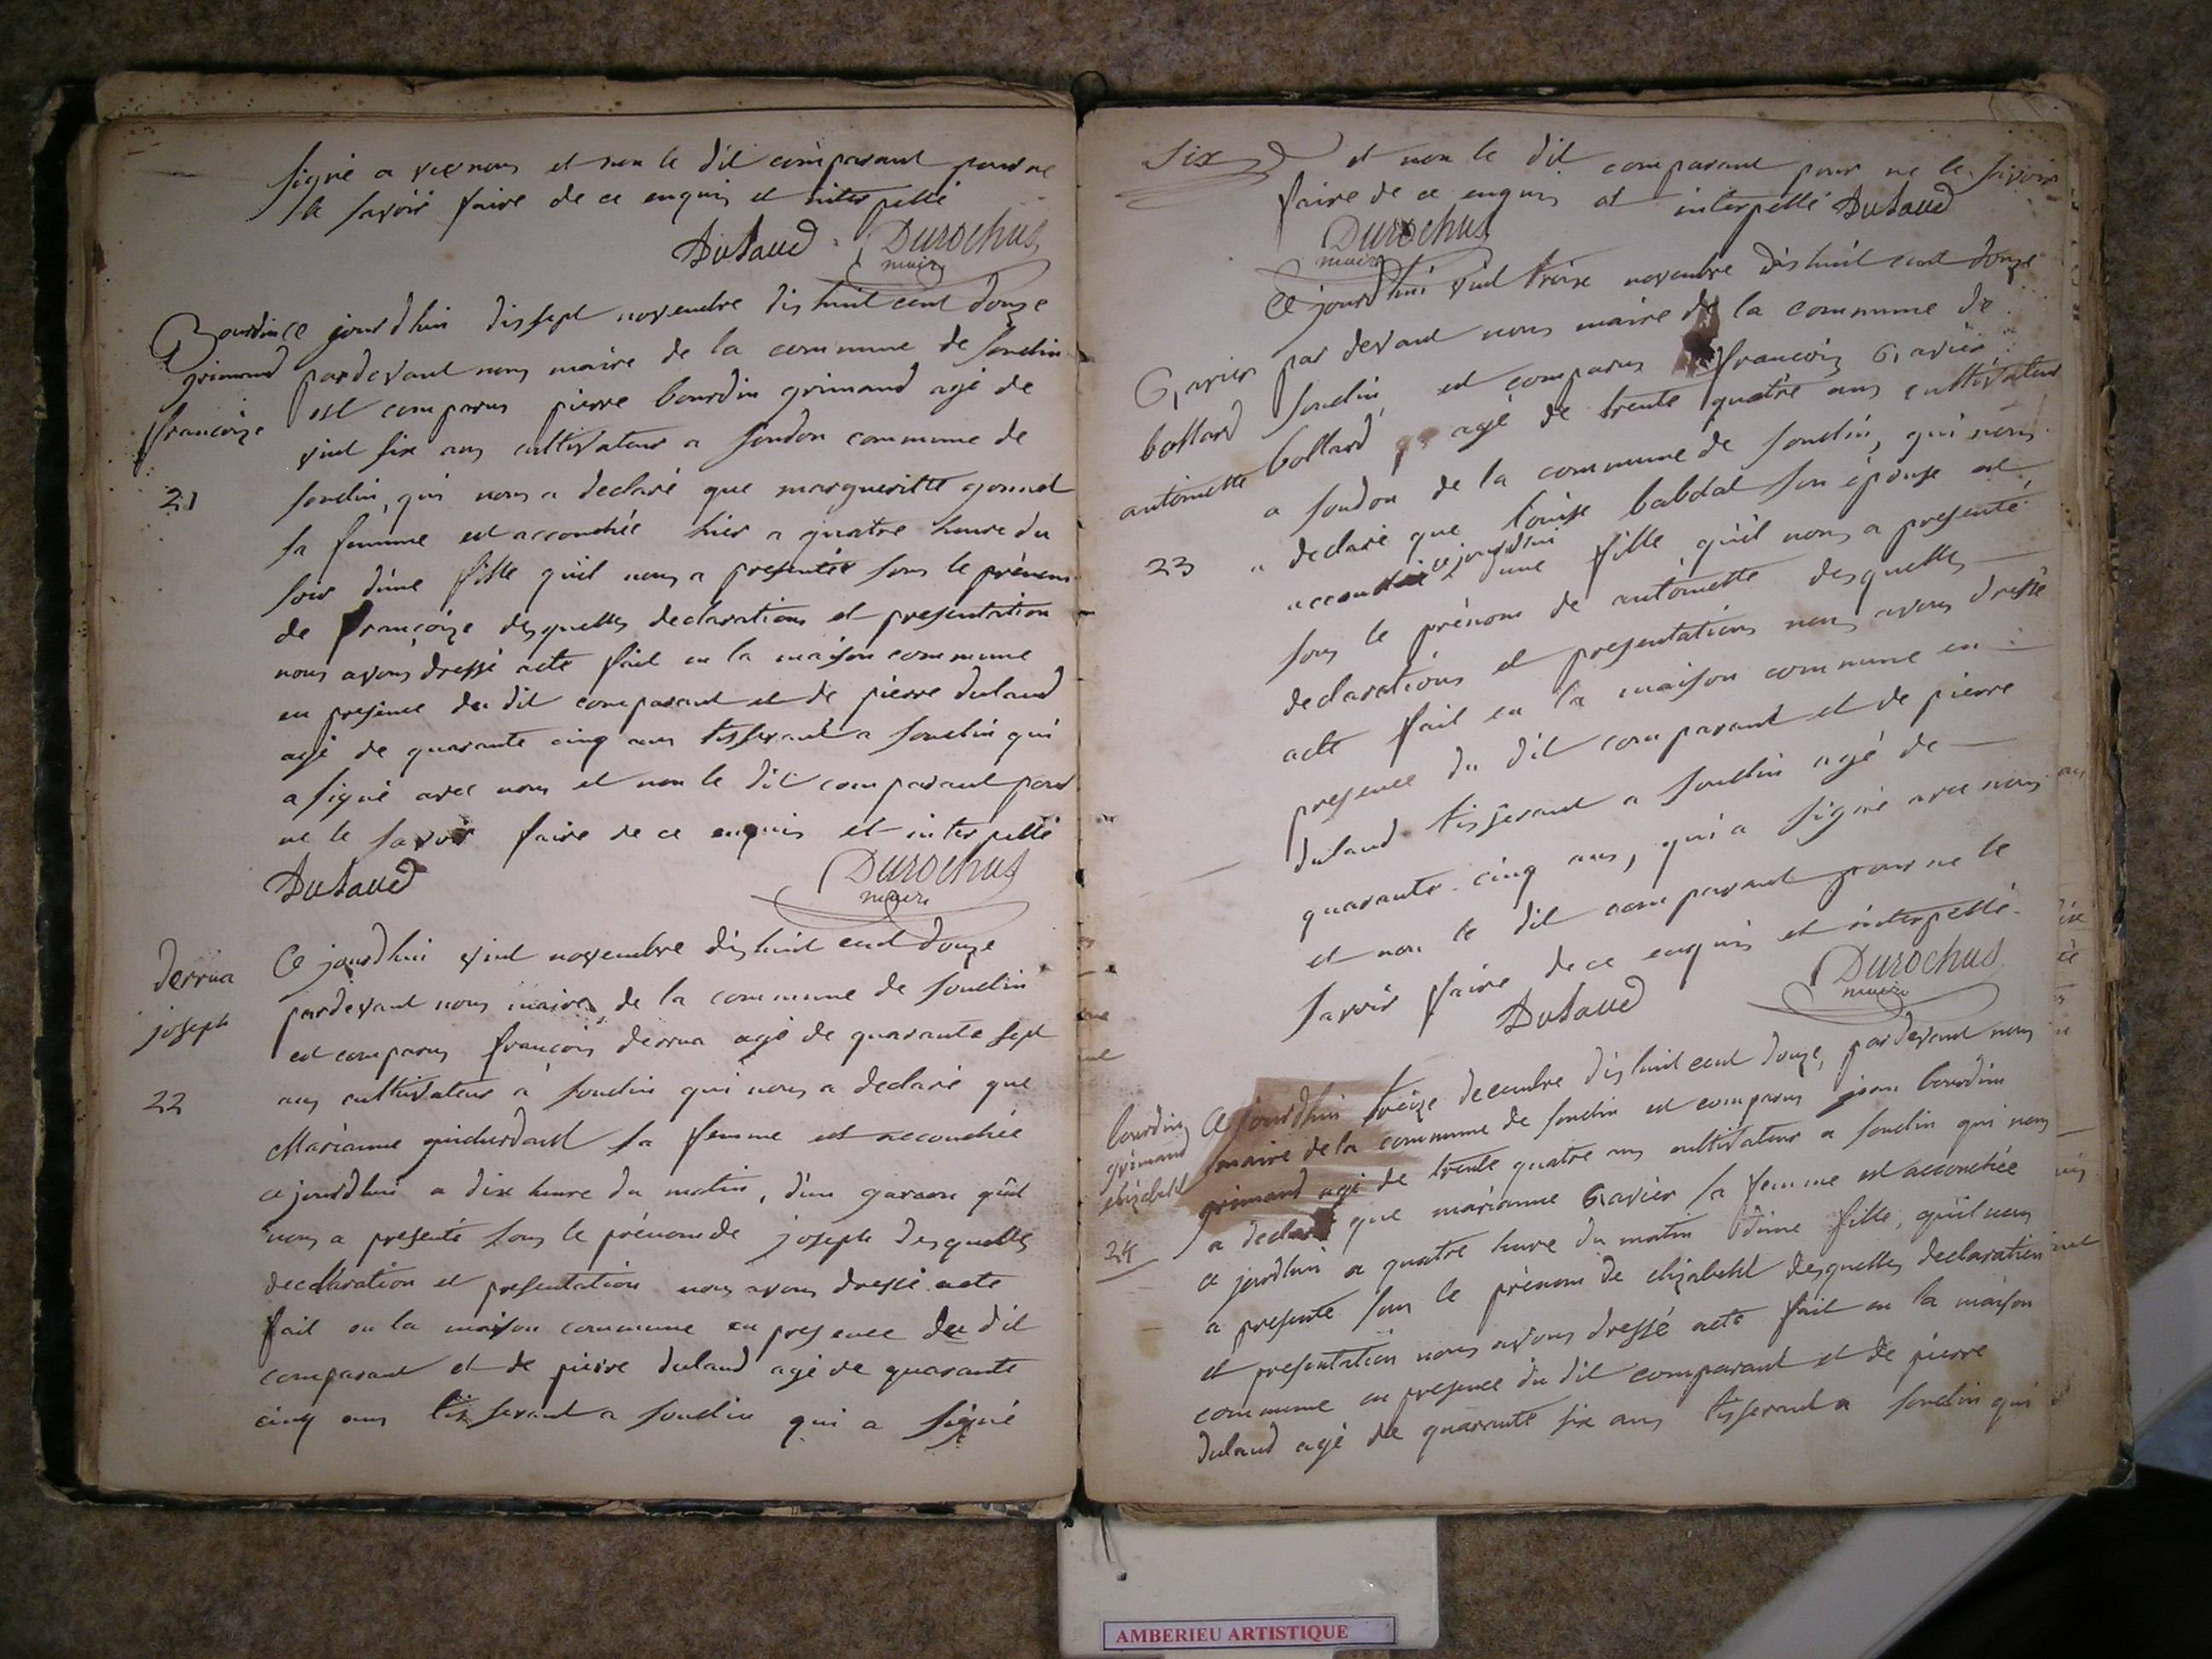 signé a vec nous et non le dit comparant pour ne
le savoir faire de ce enquis et interpellé
Dulaud Durochus
maire
Bourdin
grimand
francoise
21
Ce jourd'hui dis sept novembre dis huit cent douze
par devant nous maire de la commune de soudin
est comparus pierre bourdin grimand agé de
vint six ans cultivateur a soudon commune de
soudin, qui nous a declaré que margueritte gonnet
sa femme est accouchée hier a quatre heure du
soir d'une fille qu'il nous a presentée sous le prénom
de françoize desquelles declarations et presentation
nous avons dressé acte fait en la maison commune
en presence du dit comparant et de pierre dulaud
agé de quarante cinq ans tisserant a soudin qui
a signé avec nous et non le dit comparant pour
ne le savoir faire de ce enquis et interpellé
Dulaud Durochus
maire
derrua
joseph
22
Ce jourd'hui vint novembre dishuit cent douze
pardevant nous maire de la commune de soudin
est comparus francois derrua agé de quarante sept
ans cultivateur a soudin qui nous a declaré que
Marianne sa femme est accouchée
ce jourd'hui a dix heure du matin, d'un garcon qu'il
nous a presenté sous le prénom de joseph desquelles
decclaration et presentation nous avons dressé acte
fait en la maison commune en presence du dit
comparant et de pierre dulaud agé de quarante
cinq ans tisserant a soudin qui a signé
Six et non le dit comparant pour ne le savoir
faire de ce enquis et interpellé Dulaud
Durochus
maire
Gravier
bollard
antoinette
23
Ce jourd'hui vint troix novembre dishuit cent douze
par devant nous maire de la commune de
soudin est comparus francois Gravier
bollard agé de trente quatre ans cultivateur
a soudon de la commune de soudin, qui nous
a declaré que louise babdal son épouse est
accouchée ce jourd'hui d'une fille qu'il nous a presenté
sous le prénom de antoinette desquelles
declarations et presentations nous avons dressé
acte fait en la maison commune en
presence du dit comparant et de pierre
dulaud tisserant a soudin agé de
quarante cinq ans, qui a signé avec nous
et non le dit comparant pour ne le
savoir faire de ce enquis et interpellé
Dulaud Durochus
maire
bourdin
grimand
elizabeht
24
Ce jourdhui treize decembre dishuit cent douze, pardevant nous
maire de la commune de soudin est comparus jean bourdin
grimand agé de trente quatre ans cultivateur a soudin qui nous
a declaré que marianne Gravier sa femme est accouchée
ce jourdhui a quatre heure du matin d'une fille, qu'il nous
a presenté sous le prénom de elizabeht desquelles declaration
et presentation nous avons dressé acte fait en la maison
commune en presence du dit comparant et de pierre
dulaud agé de quarrante six ans tisserand a soudin qui
AMBERIEU ARTISTIQUE